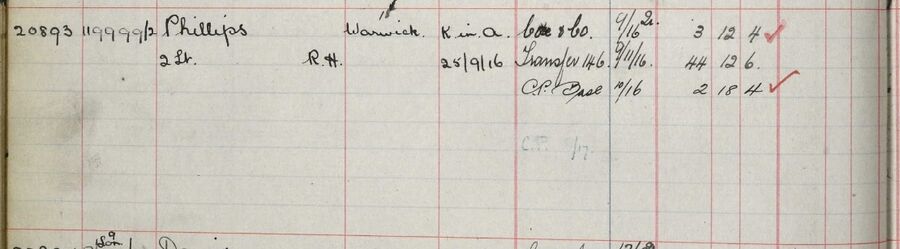 11
20893 119999/2 Phillips Warwick. K in A. Cox & Co. 9/16 2. 3 12 4 ✓
2 Lt. R.H. 25/9/16 Transfer 146. 9/11/16. 44 12 6.
C.P. Base 10/16 2 18 4 ✓
C.P. 9/17.
9